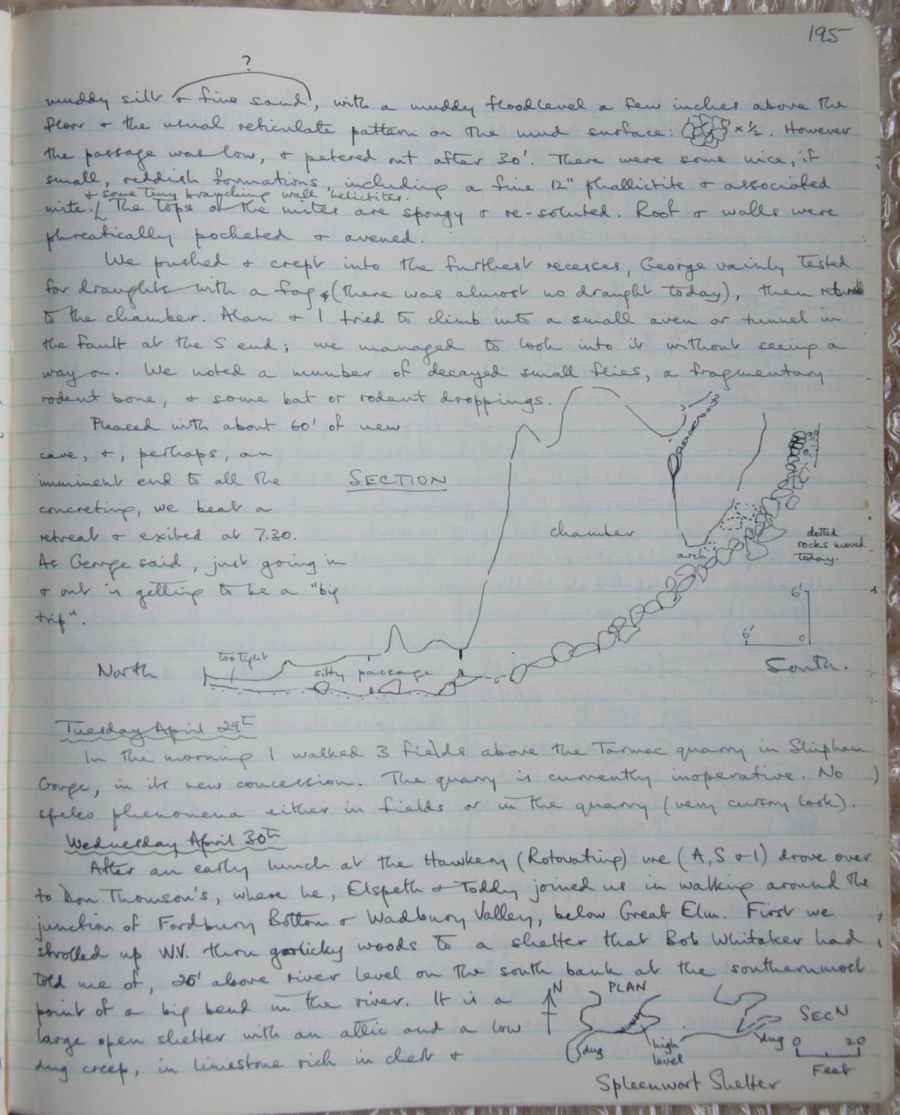 195
?
muddy silt & fine sand, with a muddy floodlevel a few inches above the
floor & the usual reticulate pattern on the mud surface: x ½. However
the passage was low, & petered out after 30'. There were some nice, if
small, reddish formations, including a fine 12" phallictite & associated
& some tiny branching wall helictites.
mite. The tops of the mites are spongy & re-soluted. Roof & walls were
phreatically pocketed & avened.
We pushed & crept into the furthest recesses, George vainly tested
for draughts with a fag, (there was almost no draught today), then
to the chamber. Alan & I tried to climb into a small aven or tunnel in
the fault at the S end; we managed to look into it without seeing a
way on. We noted a number of decayed small flies, a fragmentary
rodent bone, & some bat or rodent droppings.
Pleased with about 60' of new
cave, &, perhaps, an
imminent end to all the
concreting, we beat a
retreat & exited at 7.30.
As George said, just going in
& out is getting to be a "big
trip".
SECTION
chamber
arch
dotted
rocks moved
today.
6'
6'
0
North
too tight
silty passage
South.
Tuesday April 29th
In the morning I walked 3 fields above the Tarmac quarry in Shipham
Gorge, in its new concession. The quarry is currently inoperative. No
speleo phenomena either in fields or in the quarry (very cursory look).
Wednesday April 30th
After an early lunch at the Hawkery (Rotovating) we (A, S & I) drove over
to Don Thomson's, where he, Elspeth & Toddy joined us in walking around the
junction of Fordbury Bottom & Wadbury Valley, below Great Elm. First we
strolled up W.V. thru garlicky woods to a shelter that Bob Whitaker had
told me of, 25' above river level on the south bank at the southernmost
point of a big bend in the river. It is a
large open shelter with an attic and a low
dug creep, in limestone rich in chert &
N
PLAN
dug
high
level
SECN
dug
0
20
Feet
Spleenwort Shelter